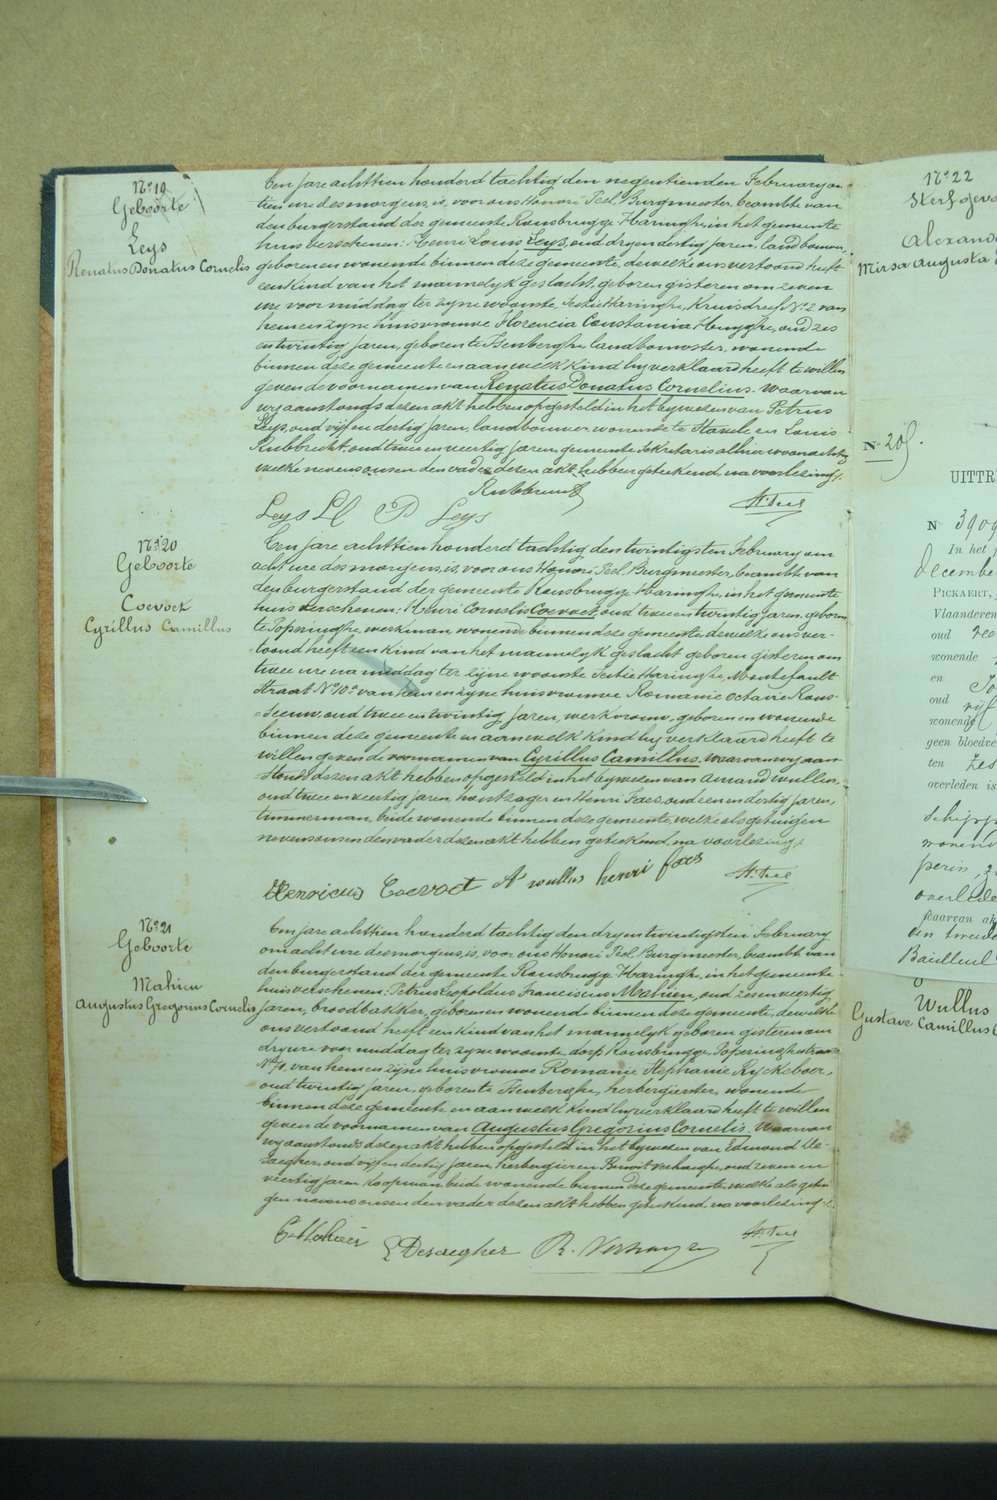 N° 19
Geboorte
Leys
Renatus Donatus Cornelis
Een jare achttien honderd tachtig den negentienden February om
tien ure des morgens, is, voor ons Honoré Peel, Burgmeester, beambte van
den burgerstand der gemeente Rousbrugge Haringhe, in het gemeente
huis verschenen: Henri Louis Leys, oud dry en dertig jaren, landbouwer,
geboren en wonende binnen deze gemeente, dewelke ons vertoond heeft
een kind van het mannelyk geslacht, geboren gisteren om zeven
ure voor middag ter zyne woonste, Sectie Haringhe, Kruisdreef N° 2 van
hem en zyne huisvrouwe Florencia Constantia Huyghe, oud zes
en twintig jaren, geboren te Isenberghe landbouwster, wonende
binnen deze gemeente en aan welk kind hy verklaard heeft te willen
geven de voornamen van Renatus Donatus Cornelius. Waarvan
wy aanstonds dezen akt hebben opgesteld in het bywezen van Petrus
Leys, oud vyf en dertig jaren, landbouwer wonende te Stavele en Louis
Rubbrecht, oud twee en veertig jaren, gemeente sekretaris alhier woonachtig
welke nevens ons en den vader dezen akt hebben geteekend, na voorlezing.
Rubbrecht
Leys Hl P Leys H. Peel
N° 20
Geboorte
Coevoet
Cyrillus Camillus
Een jare achttien honderd tachtig den twintigsten February om
acht ure des morgens, is, voor ons Honoré Peel, Burgmeester, beambt van
den burgerstand der gemeente Rousbrugge Haringhe, in het gemeente
huis verschenen: Henri Cornelis Coevoet, oud twee en twintig jaren, geboren
te Poperinghe, werkman, wonende binnen deze gemeente dewelke ons ver-
toond heeft een kind van het mannelyk geslacht geboren gisteren om
twee ure na middag ter zyne woonste Sectie Haringhe, Montefault
straat N° 10° van hem en zyne huisvrouwe Romanie Octavie Rous-
seeuw, oud twee en twintig jaren, werkvrouw, geboren en wonende
binnen deze gemeente en aan welk kind hy verklaard heeft te
willen geven de voornamen van Cyrillus Camillus. Waarvan wy aan-
stonds dezen akt hebben opgesteld in het bywezen van Amand Wullus,
oud twee en veertig jaren, houtzager en Henri Faes, oud een en dertig jaren,
timmerman, beide wonende binnen deze gemeente, welke als getuigen
nevens ons en den vader dezen akt hebben geteekend, na voorlezing.
Henricus Coevoet A wullus henri faes H. Peel
N° 21
Geboorte
Mahieu
Augustus Gregorius Cornelis
Een jare achttien honderd tachtig den dry en twintigsten February
om acht ure des morgens, is, voor ons Honoré Peel, Burgmeester, beambt van
den burgerstand der gemeente Rousbrugge Haringhe, in het gemeente
huis verschenen: Petrus Leopoldus Franciscus Mahieu, oud zes en veertig
jaren, broodbakker, geboren en wonende binnen deze gemeente, dewelke
ons vertoond heeft een kind van het mannelyk geboren gisteren om
dry ure voor middag ter zyne woonste, dorp Rousbrugge, Poperinghestraat
N° 1, van hem en zyne huisvrouwe Romanie Stephanie Ryckeboer,
oud twintig jaren, geboren te Isenberghe, herbergierster, wonende
binnen deze gemeente en aan welk kind hy verklaard heeft te willen
geven de voornamen van Augustus Gregorius Cornelis. Waarvan
wy aanstonds dezen akt hebben opgesteld in het bywezen van Edmond De-
saegher, oud vyf en dertig jaren, herbergier en Benoit Verhaeghe, oud zeven en
veertig jaren, koopman, beide wonende binnen deze gemeente welke als getui-
gen nevens ons en den vader dezen akt hebben geteekend na voorlezing.
Mahieu E Desaegher B. Verhaeghe H. Peel
N° 22
Alexand
Mirsa Augusta
N° 205.
UITTR
N 390
In het j
decembe
PICKAERT,
Vlaanderen
oud
wonende
en
oud vijf
wonende
geen bloedve
ten zes
overleden is
schipp
wonend
overlede
Waarvan ak
den tweede
Bailleul
Wullus
Gustave Camillus